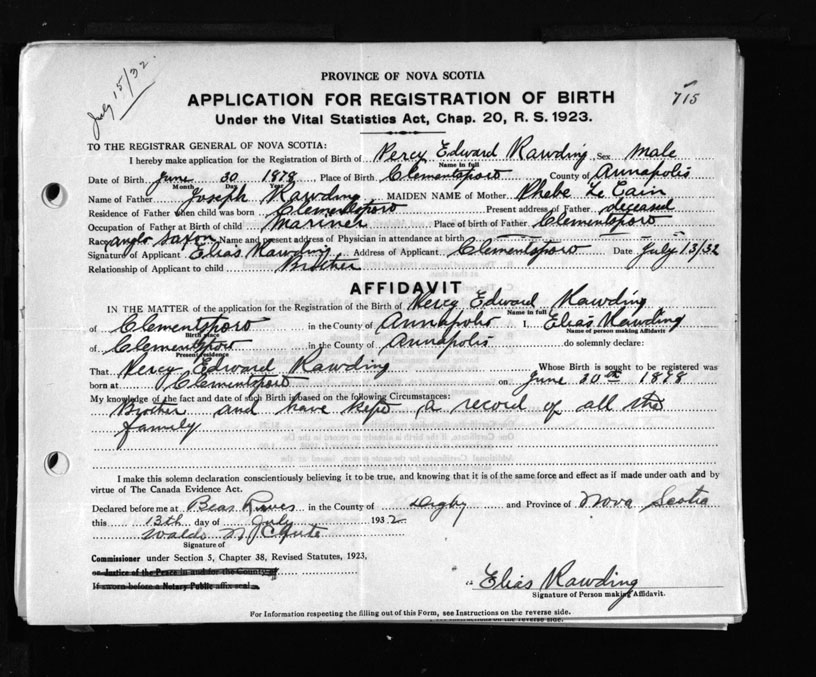 July 15/32.
PROVINCE OF NOVA SCOTIA
715
APPLICATION FOR REGISTRATION OF BIRTH
Under the Vital Statistics Act, Chap. 20, R. S. 1923.
TO THE REGISTRAR GENERAL OF NOVA SCOTIA:
I hereby make application for the Registration of Birth of Percy Edward Rawding Sex Male
Name in full
Date of Birth June 30 1878 Place of Birth Clementsport County of Annapolis
Month Day Year
Name of Father Joseph Rawding MAIDEN NAME of Mother Phebe Le Cain
Residence of Father when child was born Clementsport Present address of Father deceased
Occupation of Father at Birth of child Mariner Place of birth of Father Clementsport
Race Anglo Saxon Name and present address of Physician in attendance at birth
Signature of Applicant Elias Rawding Address of Applicant Clementsport Date July 13/32
Relationship of Applicant to child Brother
AFFIDAVIT
IN THE MATTER of the application for the Registration of the Birth of Percy Edward Rawding
Name in full
of Clementsport in the County of Annapolis I, Elias Rawding
Birth place Name of person making Affidavit
of Clementsport in the County of Annapolis do solemnly declare:
Present residence
That Percy Edward Rawding Whose Birth is sought to be registered was
born at Clementsport on June 30th 1878
My knowledge of the fact and date of such Birth is based on the following Circumstances:
Brother and have kept a record of all the
family
I make this solemn declaration conscientiously believing it to be true, and knowing that it is of the same force and effect as if made under oath and by
virtue of The Canada Evidence Act.
Declared before me at Bear River in the County of Digby and Province of Nova Scotia
this 13th day of July 1932
Waldo
Signature of
Commissioner under Section 5, Chapter 38, Revised Statutes, 1923,
or Justice of the Peace in and for the County of
If sworn before a Notary Public affix seal
Elias Rawding
Signature of Person making Affidavit.
For Information respecting the filling out of this Form, see Instructions on the reverse side.